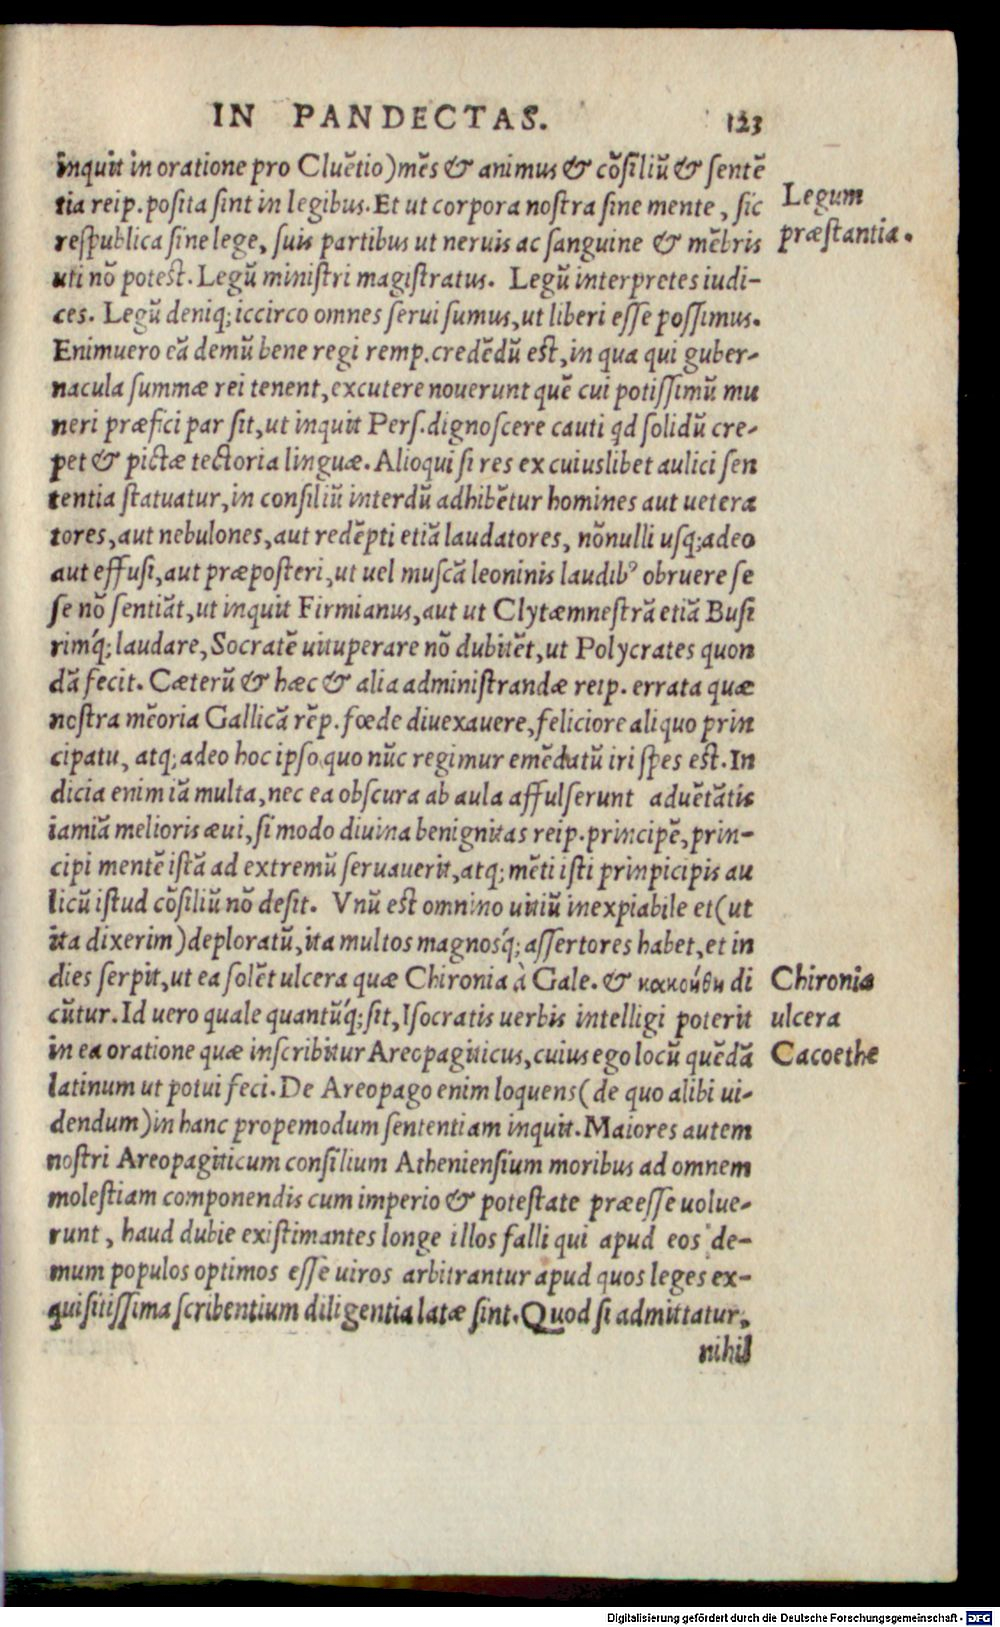 IN PANDECTAS. 123
inquit in oratione pro Cluẽtio)mẽs & animus & cõsiliũ & sentẽ
tia reip. posita sint in legibus. Et ut corpora nostra sine mente, sic
respublica sine lege, suis partibus ut neruis ac sanguine & mẽbris
uti nõ potest. Legũ ministri magistratus. Legũ interpretes iudi-
ces. Legũ deniq; iccirco omnes serui sumus, ut liberi esse possimus.
Enimuero eã demũ bene regi remp. credẽdũ est, in qua qui guber-
nacula summæ rei tenent, excutere nouerunt quẽ cui potissimũ mu
neri præfici par sit, ut inquit Pers. dignoscere cauti qd solidũ cre-
pet & pictæ tectoria linguæ. Alioqui si res ex cuiuslibet aulici sen
tentia statuatur, in consiliũ interdũ adhibẽtur homines aut uetera
tores, aut nebulones, aut redẽpti etiã laudatores, nõnulli usq; adeo
aut effusi, aut præposteri, ut uel muscã leoninis laudibꝰ obruere se
se nõ sentiãt, ut inquit Firmianus, aut ut Clytæmnestrã etiã Busi
rimq́; laudare, Socratẽ uituperare nõ dubitẽt, ut Polycrates quon
dã fecit. Cæterũ & hæc & alia administrandæ reip. errata quæ
nostra mẽoria Gallicã rẽp. fœde diuexauere, feliciore aliquo prin
cipatu, atq; adeo hoc ipso quo nũc regimur emẽdatũ iri spes est. In
dicia enim iã multa, nec ea obscura ab aula affulserunt aduẽtãtis
iamiã melioris æui, si modo diuina benignitas reip. principẽ, prin-
cipi mentẽ istã ad extremũ seruauerit, atq; mẽti isti prinpicipis au
licũ istud cõsiliũ nõ desit. Vnũ est omnino uitiũ inexpiabile et (ut
ita dixerim) deploratũ, ita multos magnosq́; assertores habet, et in
dies serpit, ut ea solẽt ulcera quæ Chironia à Gale. & κακοήθη di
cũtur. Id uero quale quantũq́; sit, Isocratis uerbis intelligi poterit
in ea oratione quæ inscribitur Areopagiticus, cuius ego locũ quẽdã
latinum ut potui feci. De Areopago enim loquens (de quo alibi ui-
dendum) in hanc propemodum sententiam inquit. Maiores autem
nostri Areopagiticum consilium Atheniensium moribus ad omnem
molestiam componendis cum imperio & potestate præesse uolue-
runt, haud dubie existimantes longe illos falli qui apud eos de-
mum populos optimos esse uiros arbitrantur apud quos leges ex-
quisitissima scribentium diligentia latæ sint. Quod si admittatur,
nihil
Legum
præstantia.
Chironia
ulcera
Cacoethe
Digitalisierung gefördert durch die Deutsche Forschungsgemeinschaft - DFG